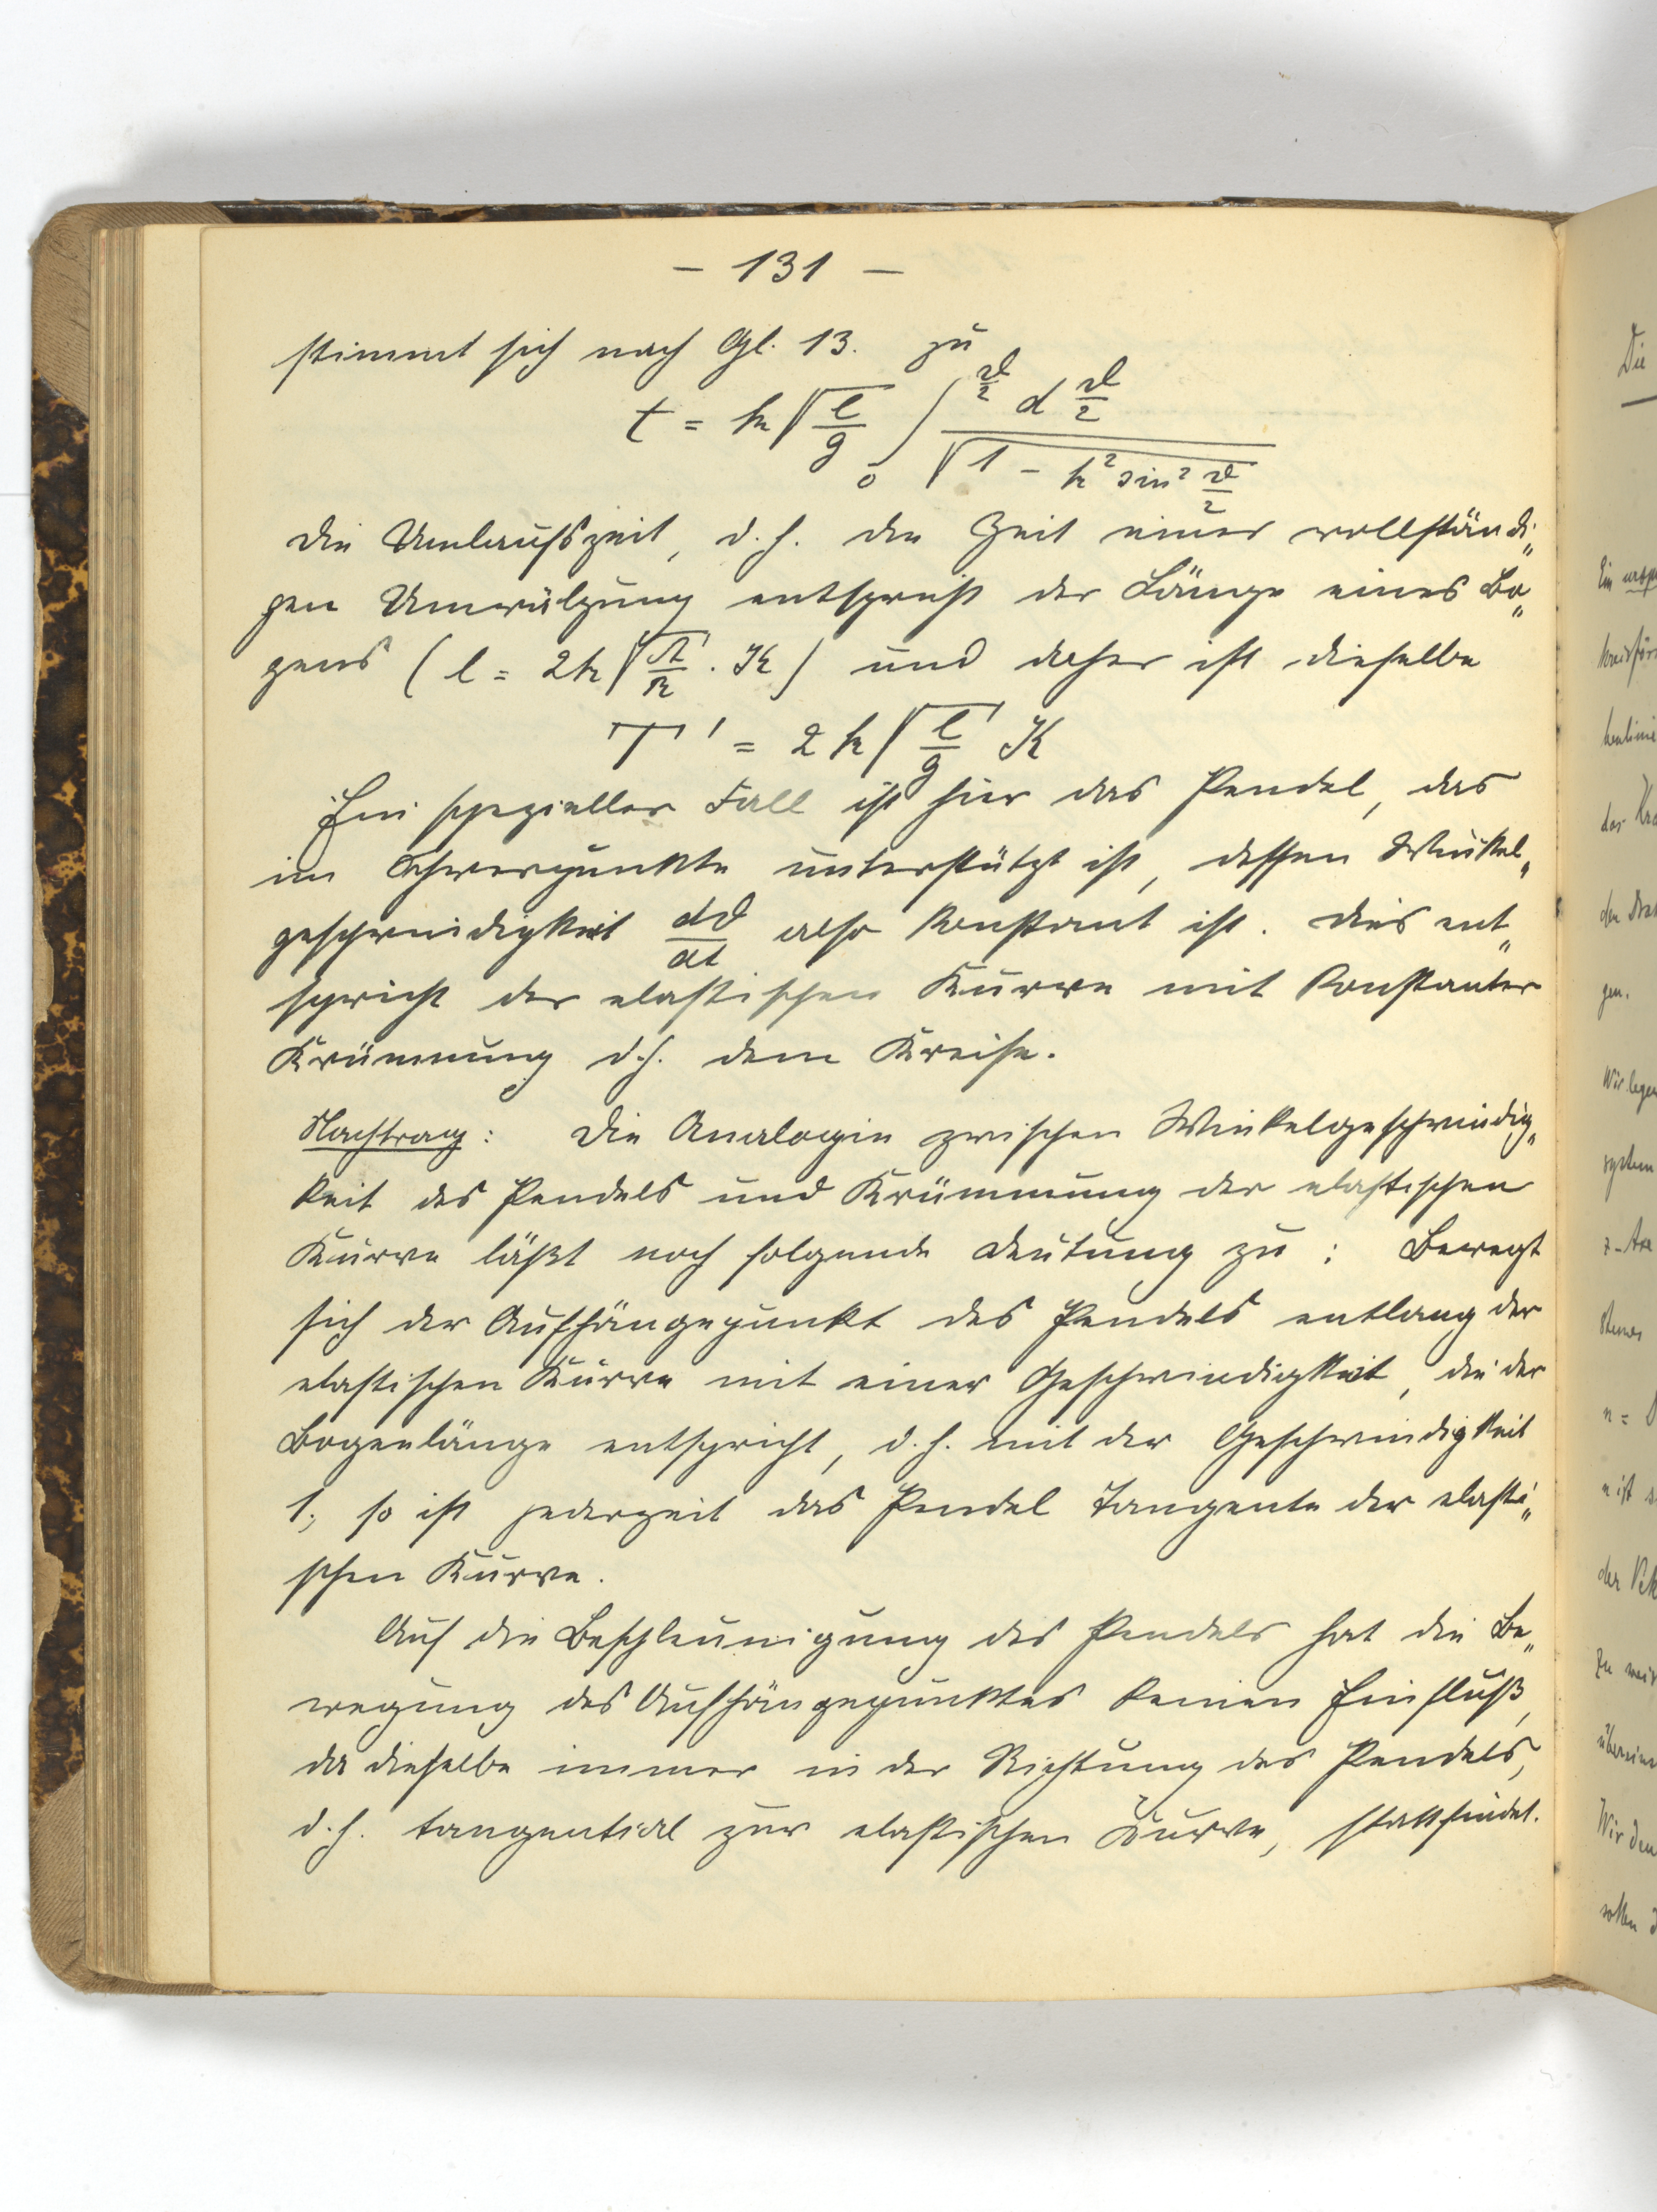 — 131 —
stimmt sich nach Gl. 13. zu
t = k √(l/g) ∫₀^(ϑ/2) d ϑ/2 / √(1 − k² sin² ϑ/2)
Die Umlaufszeit, d. h. die Zeit einer vollständi„
gen Umwälzung entspricht der Länge eines Bo„
gens ( l = 2k √(A/R) . K ) und daher ist dieselbe
T' = 2 k √(l/g) K
Ein spezieller Fall ist hier das Pendel, das
im Schwerpunkte unterstützt ist, dessen Winkel„
geschwindigkeit dϑ/dt also konstant ist. Dies ent„
spricht der elastischen Kurve mit konstanter
Krümmung d. h. dem Kreise.
Nachtrag: Die Analogie zwischen Winkelgeschwindig„
keit des Pendels und Krümmung der elastischen
Kurve läßt noch folgende Deutung zu : Bewegt
sich der Aufhängepunkt des Pendels entlang der
elastischen Kurve mit einer Geschwindigkeit, die der
Bogenlänge entspricht, d. h. mit der Geschwindigkeit
1, so ist jederzeit das Pendel Tangente der elasti„
schen Kurve.
Auf die Beschleunigung des Pendels hat die Be„
wegung des Aufhängepunktes keinen Einfluß,
da dieselbe immer in der Richtung des Pendels,
d. h. tangential zur elastischen Kurve, stattfindet.
Die
Ein
der
gen.
Wir legen
system
n =
n ist
der
zu
Wir den
sollen